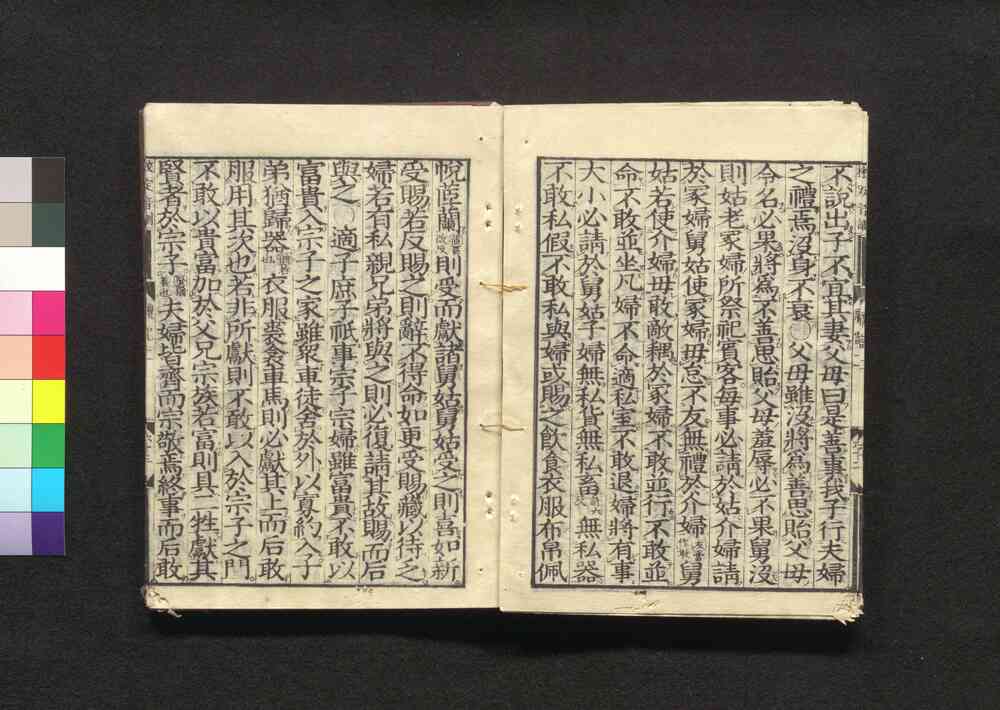 不說出子不宜其妻父母曰是善事我子行夫婦
之禮焉沒身不衰○父母雖沒將為善思貽父母
令名必果將為不善思貽父母羞辱必不果舅沒
則姑老冢婦所祭祀賓客每事必請於姑介婦請
於冢婦舅姑使冢婦毋怠不友無禮於介婦舅
姑若使介婦毋敢敵耦於冢婦不敢並行不敢並
命不敢並坐凡婦不命適私室不敢退婦將有事
大小必請於舅姑子婦無私貨無私畜無私器
不敢私假不敢私與婦或賜之飲食衣服布帛佩
帨茝蘭則受而獻諸舅姑舅姑受之則喜如新
受賜若反賜之則辭不得命如更受賜藏以待之
婦若有私親兄弟將與之則必復請其故賜而后
與之○適子庶子祇事宗子宗婦雖富貴不敢以
富貴入宗子之家雖衆車徒舍於外以寡約入子
弟猶歸器衣服裘衾車馬則必獻其上而后敢
服用其次也若非所獻則不敢以入於宗子之門
不敢以貴富加於父兄宗族若富則具二牲獻其
賢者於宗子夫婦皆齊而宗敬焉終事而后敢